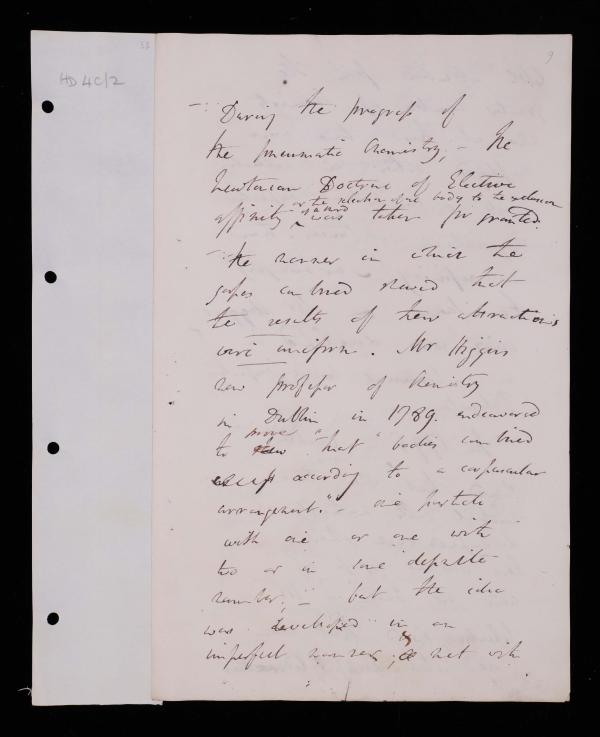 53
9
HD 4C/2
– During the progress of
the pneumatic Chemistry, – the
Newtonian Doctrine of Elective
or the selection of one body to the exclusion
of a third
affinity was taken for granted.
– The manner in which the
gasses combined shewed that
the results of their attractions
were uniform. Mr Higgins
now professor of Chemistry
in Dublin in 1789. endeavored
prove
to shew "that bodies combined
according to a corpuscular
arrangement." – one particle
with one or one with
two or in some definite
number, – but the idea
was developed in an
imperfect manner, & met with